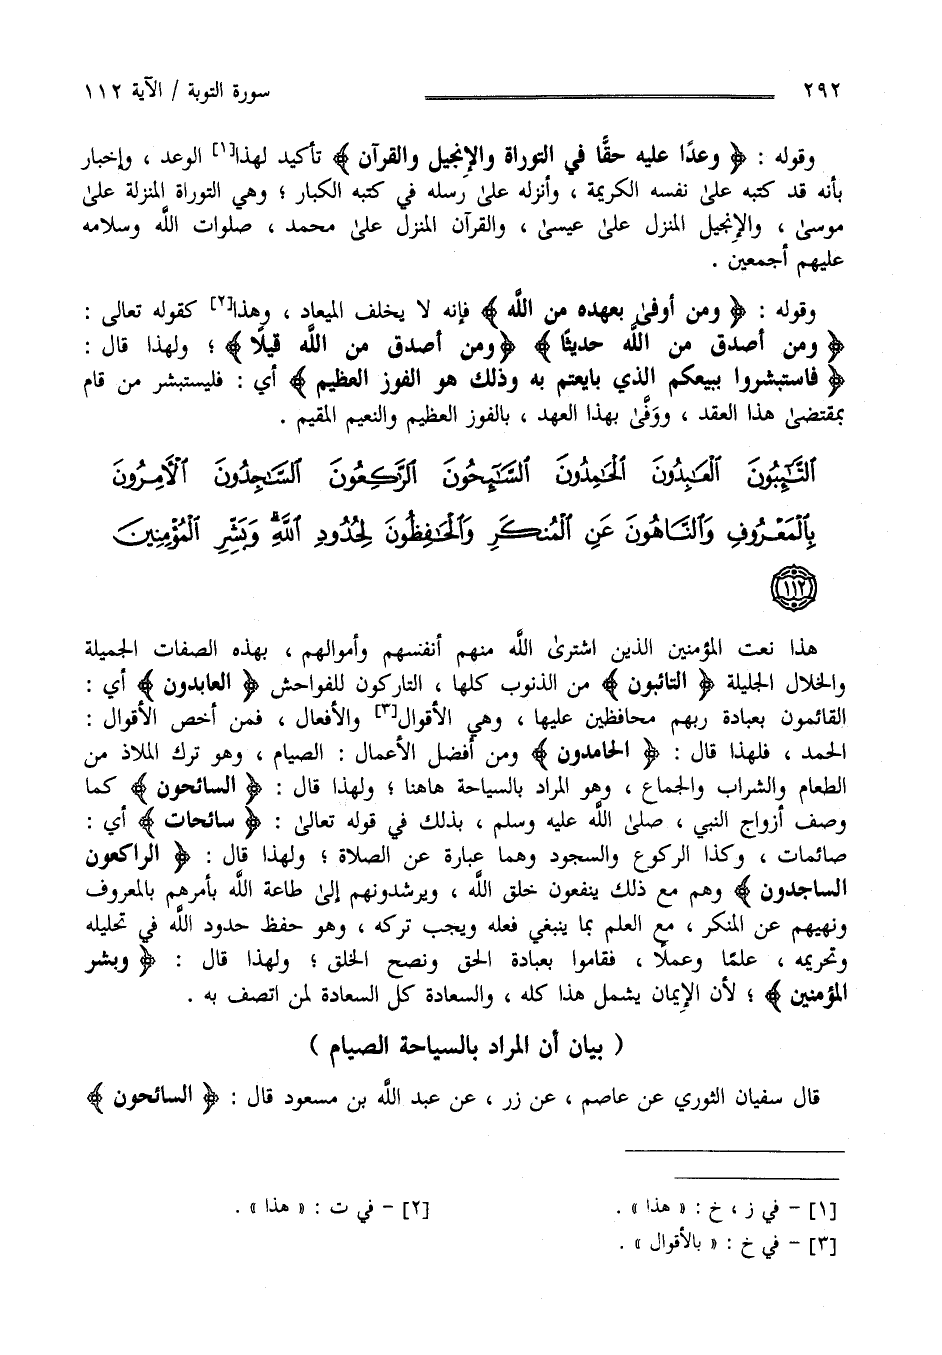 ٢٩٢ سورة التوبة / الآية ١١٢
وقوله : ﴿ وعدًا عليه حقًّا في التوراة والإنجيل والقرآن ﴾ تأكيد لهذا[١] الوعد ، وإخبار
بأنه قد كتبه علىٰ نفسه الكريمة ، وأنزله علىٰ رسله في كتبه الكبار ؛ وهي التوراة المنزلة علىٰ
موسىٰ ، والإنجيل المنزل علىٰ عيسىٰ ، والقرآن المنزل علىٰ محمد ، صلوات اللَّه وسلامه
عليهم أجمعين .
وقوله : ﴿ ومن أوفىٰ بعهده من اللَّه ﴾ فإنه لا يخلف الميعاد ، وهذا[٢] كقوله تعالى :
﴿ ومن أصدق من اللَّه حديثًا ﴾ ﴿ ومن أصدق من اللَّه قيلًا ﴾ ؛ ولهذا قال :
﴿ فاستبشروا ببيعكم الذي بايعتم به وذلك هو الفوز العظيم ﴾ أي : فليستبشر من قام
بمقتضىٰ هذا العقد ، ووَفَّىٰ بهذا العهد ، بالفوز العظيم والنعيم المقيم .
ٱلتَّـٰٓئِبُونَ ٱلْعَـٰبِدُونَ ٱلْحَـٰمِدُونَ ٱلسَّـٰٓئِحُونَ ٱلرَّٰكِعُونَ ٱلسَّـٰجِدُونَ ٱلْـَٔامِرُونَ
بِٱلْمَعْرُوفِ وَٱلنَّاهُونَ عَنِ ٱلْمُنكَرِ وَٱلْحَـٰفِظُونَ لِحُدُودِ ٱللَّهِ ۗ وَبَشِّرِ ٱلْمُؤْمِنِينَ
١١٢
هذا نعت المؤمنين الذين اشترىٰ اللَّه منهم أنفسهم وأموالهم ، بهذه الصفات الجميلة
والخلال الجليلة ﴿ التائبون ﴾ من الذنوب كلها ، التاركون للفواحش ﴿ العابدون ﴾ أي :
القائمون بعبادة ربهم محافظين عليها ، وهي الأقوال[٣] والأفعال ، فمن أخص الأقوال :
الحمد ، فلهذا قال : ﴿ الحامدون ﴾ ومن أفضل الأعمال : الصيام ، وهو ترك الملاذ من
الطعام والشراب والجماع ، وهو المراد بالسياحة هاهنا ؛ ولهذا قال : ﴿ السائحون ﴾ كما
وصف أزواج النبي ، صلىٰ اللَّه عليه وسلم ، بذلك في قوله تعالىٰ : ﴿ سائحات ﴾ أي :
صائمات ، وكذا الركوع والسجود وهما عبارة عن الصلاة ؛ ولهذا قال : ﴿ الراكعون
الساجدون ﴾ وهم مع ذلك ينفعون خلق اللَّه ، ويرشدونهم إلىٰ طاعة اللَّه بأمرهم بالمعروف
ونهيهم عن المنكر ، مع العلم بما ينبغي فعله ويجب تركه ، وهو حفظ حدود اللَّه في تحليله
وتحريمه ، علمًا وعملًا ، فقاموا بعبادة الحق ونصح الخلق ؛ ولهذا قال : ﴿ وبشر
المؤمنين ﴾ ؛ لأن الإيمان يشمل هذا كله ، والسعادة كل السعادة لمن اتصف به .
( بيان أن المراد بالسياحة الصيام )
قال سفيان الثوري عن عاصم ، عن زر ، عن عبد اللَّه بن مسعود قال : ﴿ السائحون ﴾
[١] – في ز ، خ : « هذا » . [٢] – في ت : « هذا » .
[٣] – في خ : « بالأقوال » .